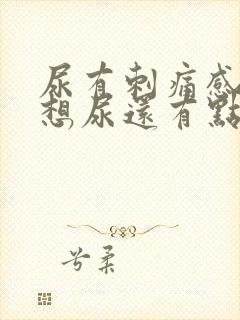 尿有刺痛感
想尿還有點
兮柔